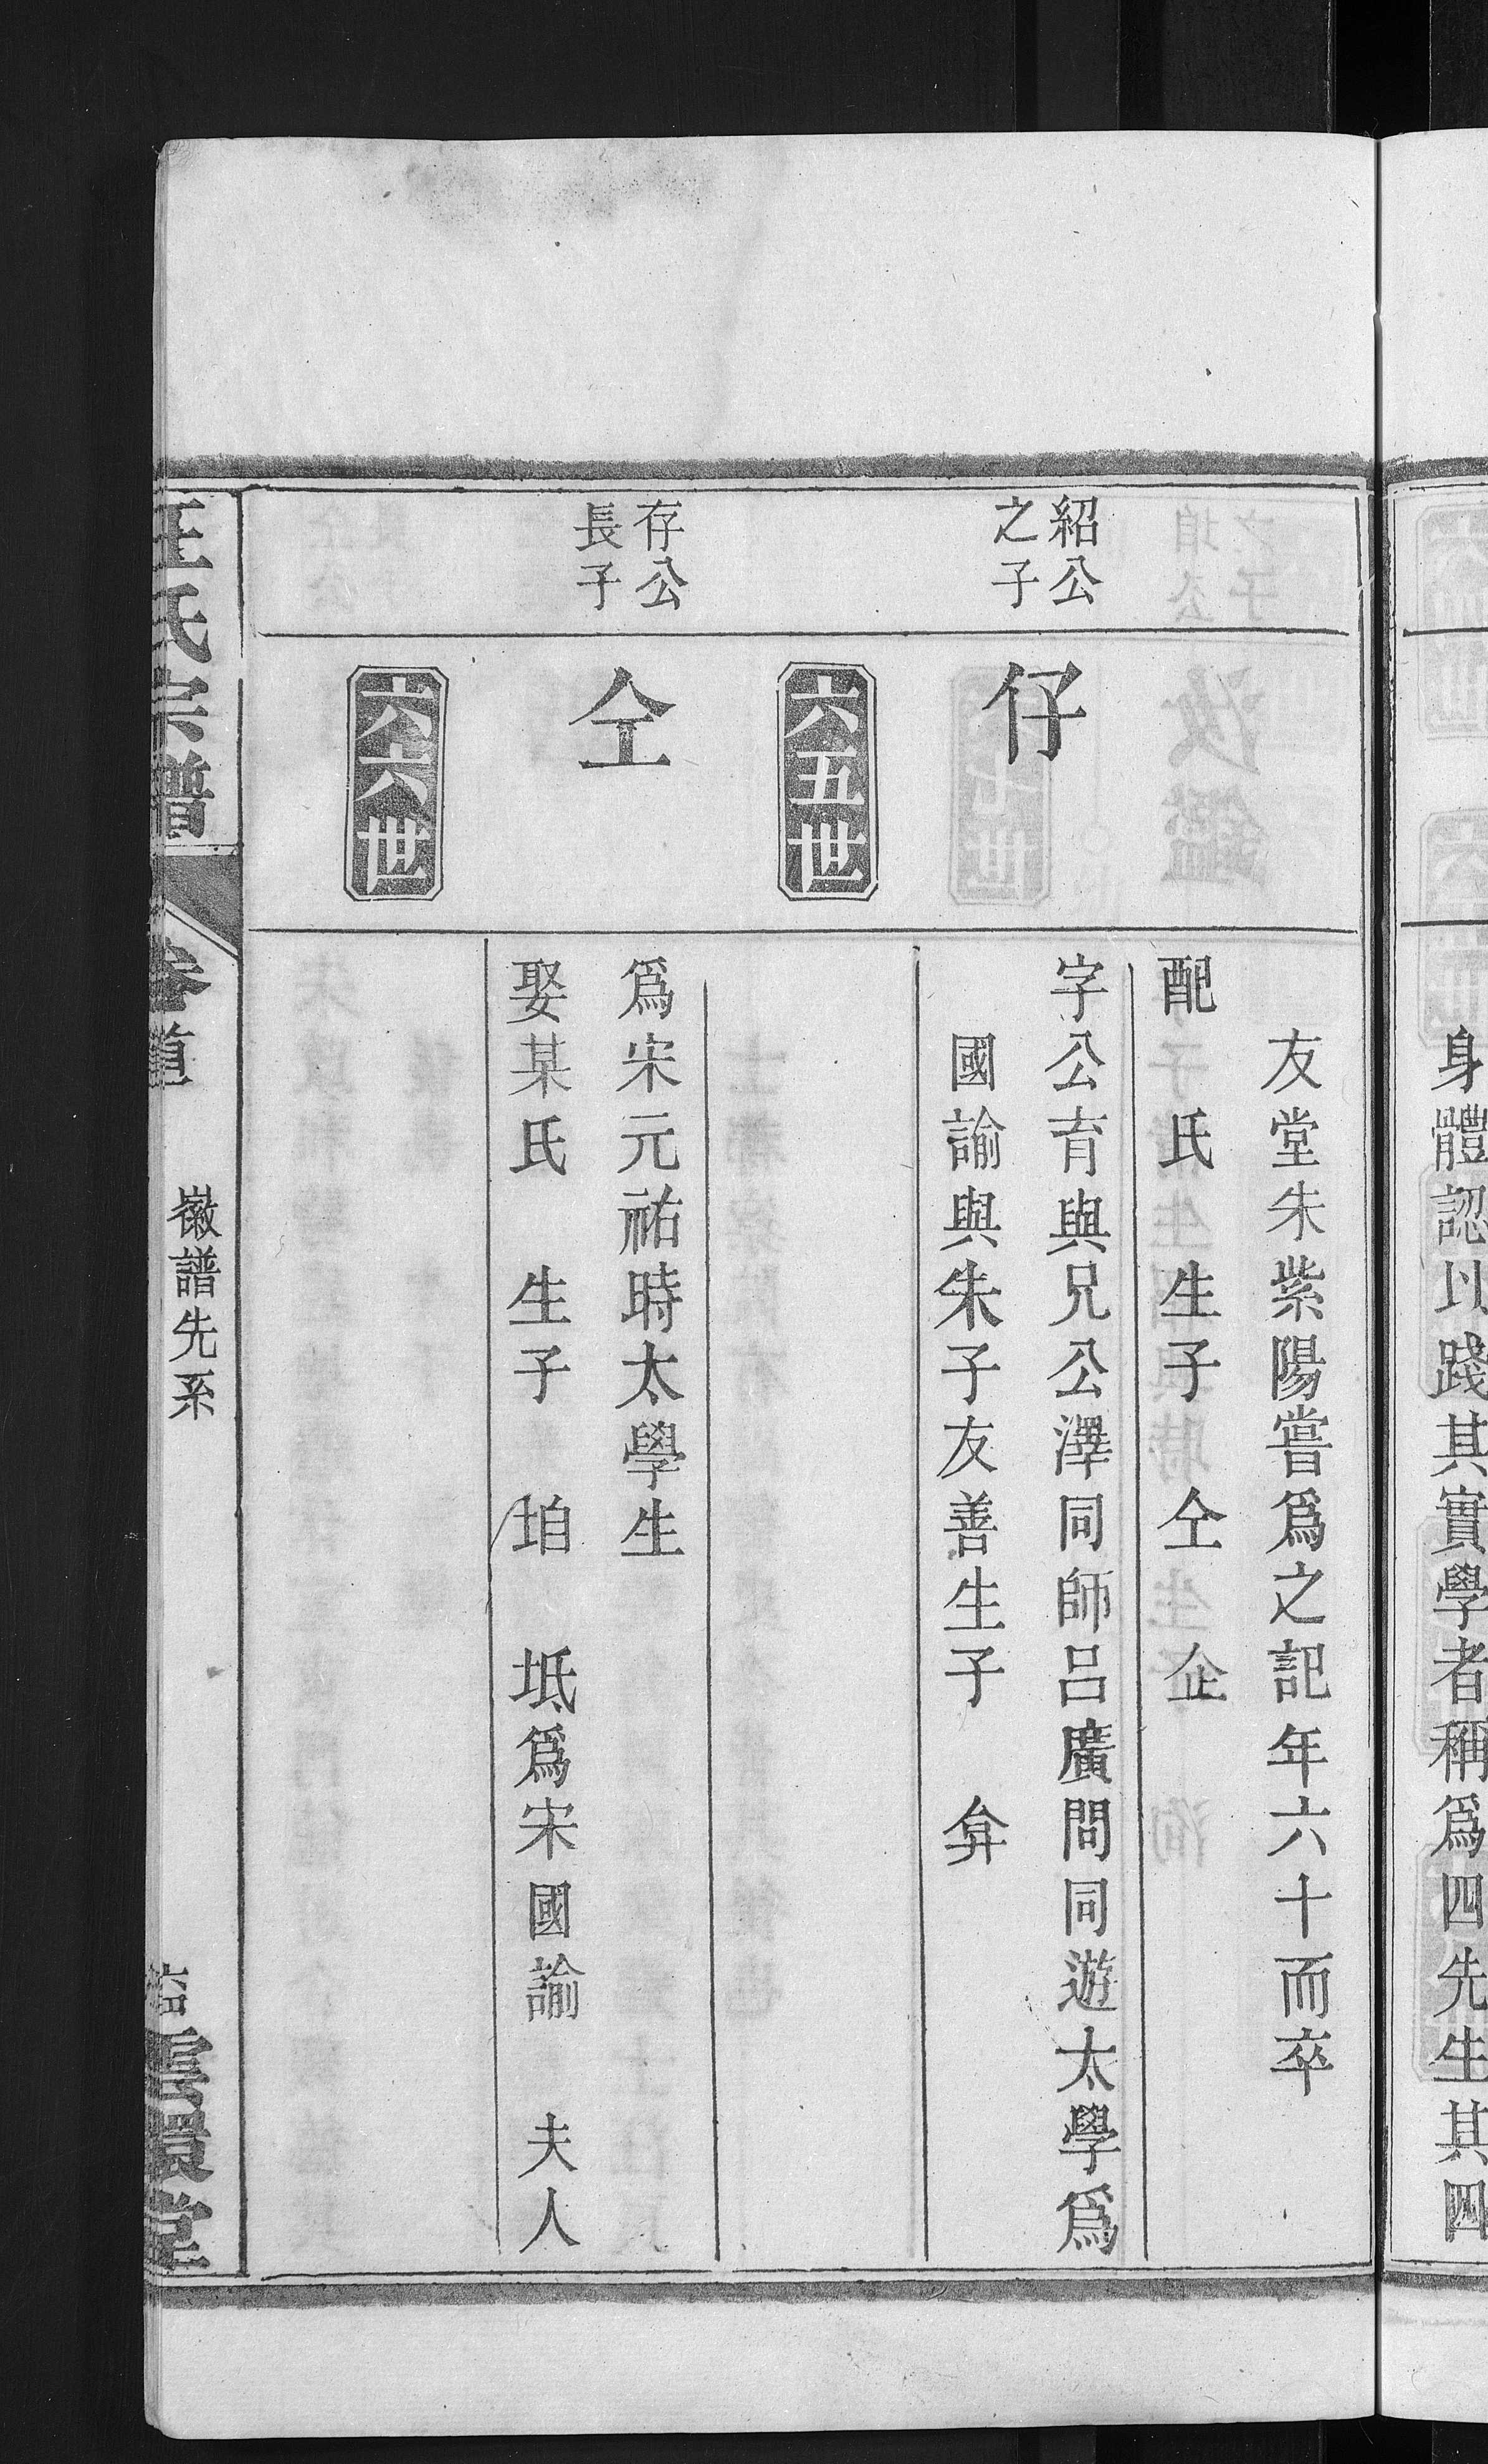 身體認以踐其實學者稱爲四先生其四
友堂朱紫陽嘗爲之記年六十而卒
配　氏　生子　仝　企
紹公
之子
仔
字公育與兄公澤同師呂廣問同遊太學爲
國諭與朱子友善生子　弅
六五世
存公
長子
仝
爲宋元祐時太學生
娶某氏　生子　垍　坻爲宋國諭　夫人
六六世
汪氏宗譜
卷首
徽譜先系